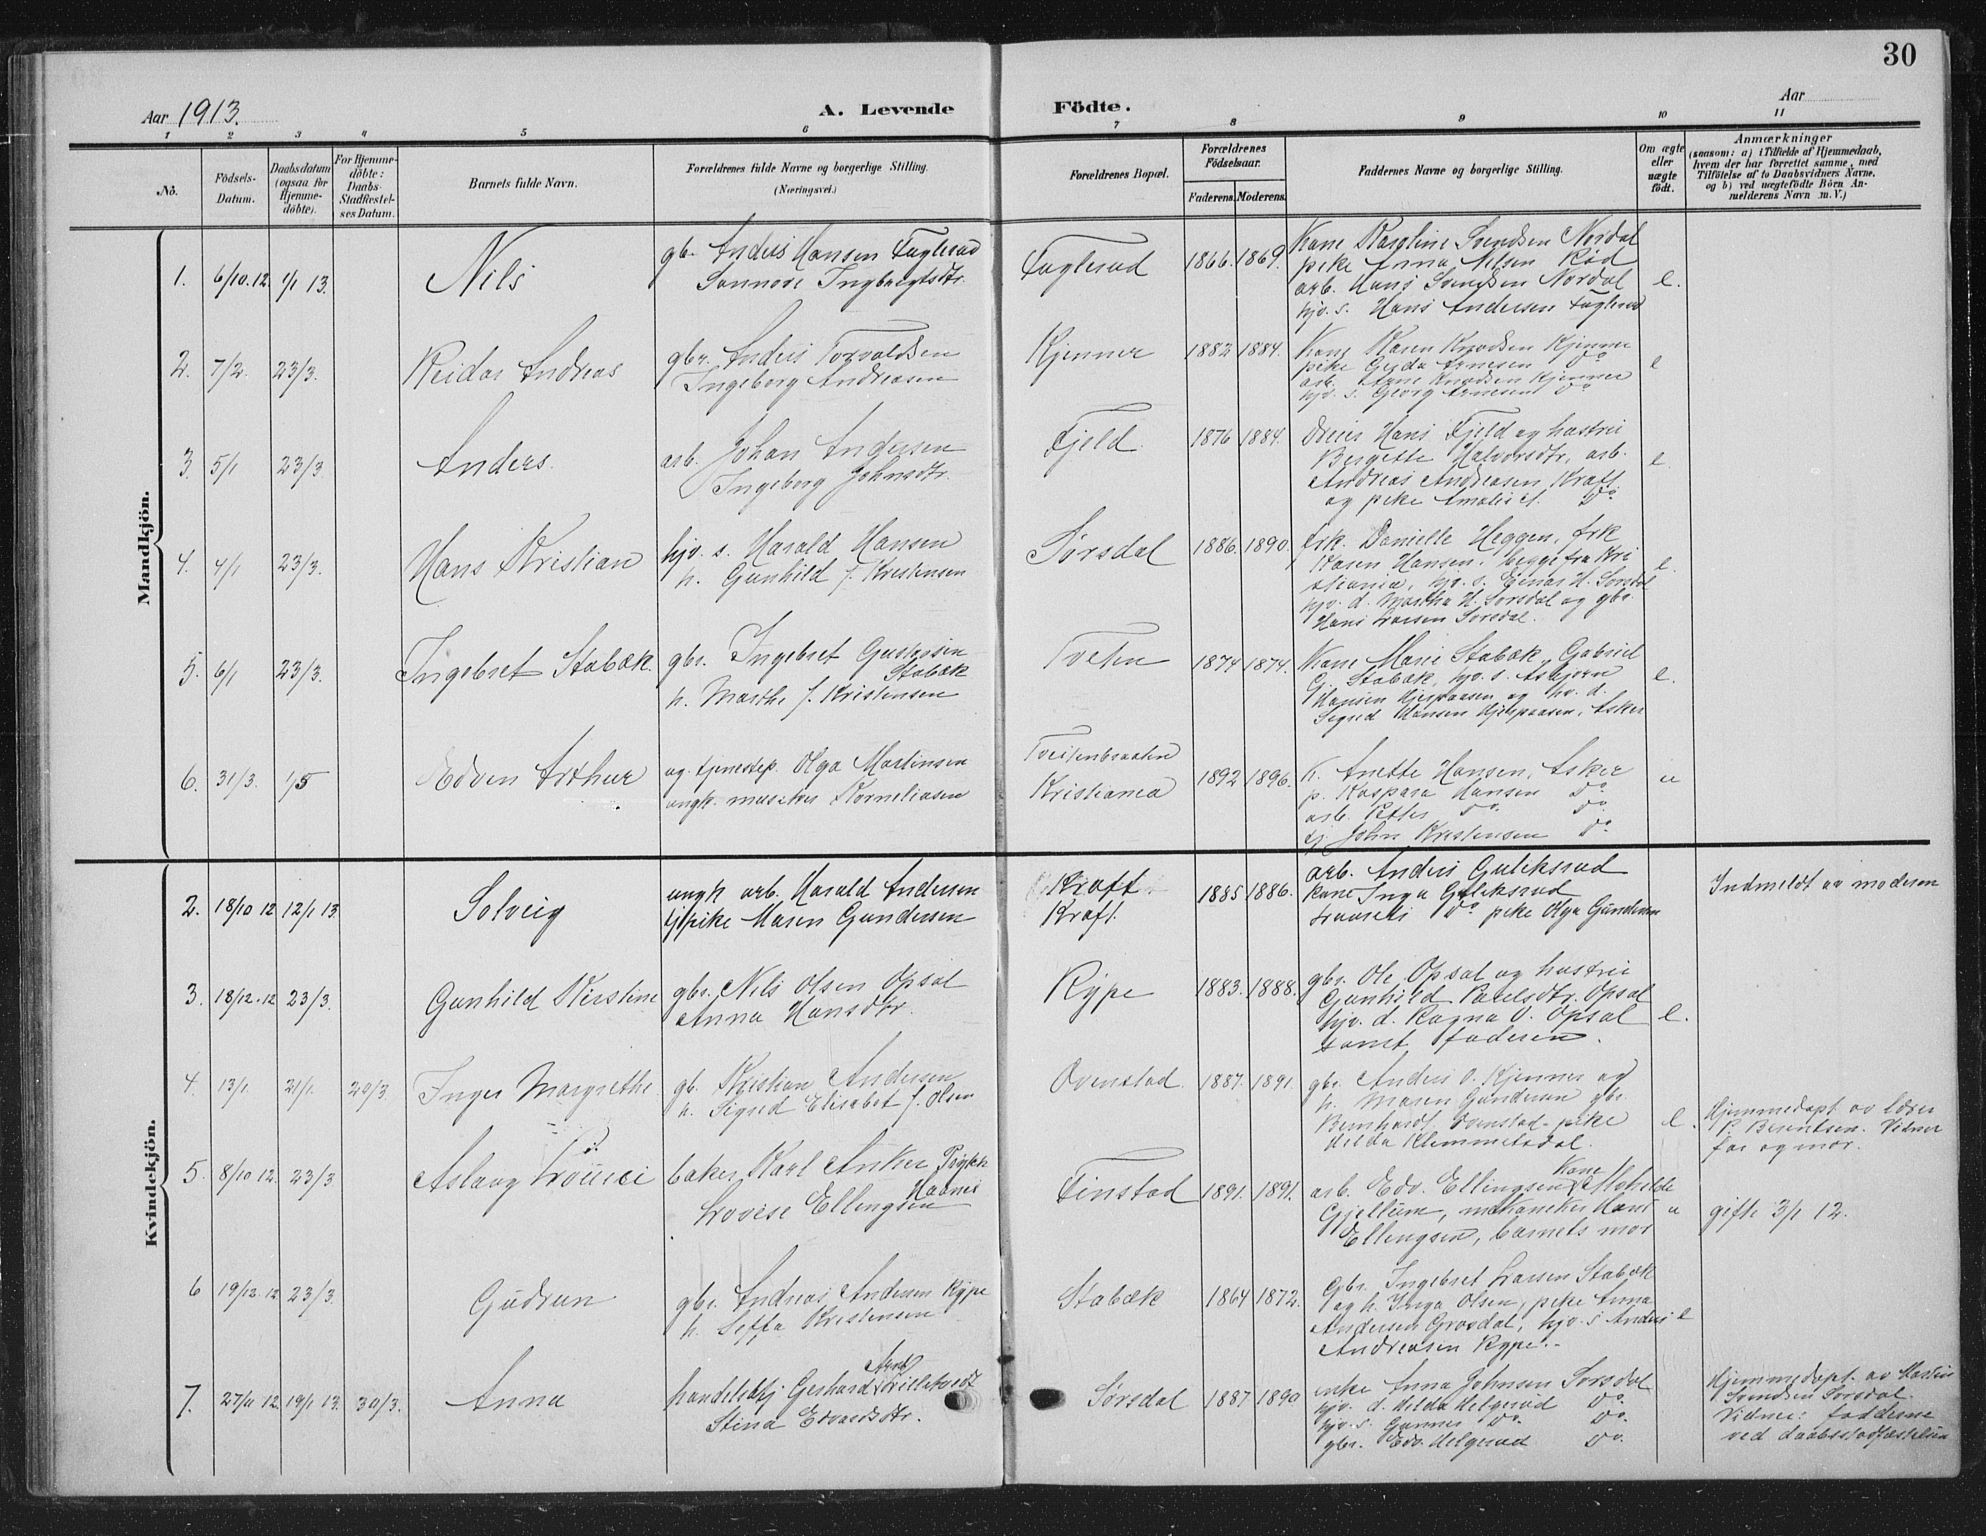 30
Aar 1913.
A. Levende Födte.
Aar
1 2 3 4 5 6 7 8 9 10 11
No.
Födsels-Datum.
Daabsdatum (ogsaa for Hjemme-döbte).
For Hjemme-döbte: Daabs-Stadfæstel-ses Datum.
Barnets fulde Navn.
Forældrenes fulde Navne og borgerlige Stilling. (Næringsvei.)
Forældrenes Bopæl.
Forældrenes Födselsaar.
Faderens. Moderens.
Faddernes Navne og borgerlige Stilling.
Om ægte eller uægte födt.
Anmærkninger
(saasom: a) i Tilfælde af Hjemmedaab,
hvem der har forrettet samme, med
Tilföielse af to Daabsvidners Navne,
og b) ved uægtefödte Börn An-
melderens Navn m. V.)
Mandkjön.
1. 6/10.12. 1/1 13. Nils
gb. Anders Hansen Fuglerud
Sonnove Ingbregtsdtr.
Fuglerud 1866. 1869.
Kone Karoline Svendsen Nordal
pike Anna Nilsen Rød
arb. Hans Svendsen Nordal
hjv. s. Hans Andersen Fuglerud
e.
2. 7/2. 23/3. Reidar Andreas
gbr. Anders Torvaldsen
Ingeborg Andreasen
Kjenner 1882 1884.
Kone Karen Knudsen Kjenner
pike Gyda Arnesen do
arb. Arne Knudsen Kjenner
hjv. s. Georg Arnesen do
e
3. 5/1 23/3 Anders.
arb. Johan Andersen
Ingeborg Johnsdtr.
Fjeld. 1876 1884.
Hans Fjeld og hustru
Bergette Halvorsdtr, arb.
Andreas Andreasen Kraft
og pike Amalie A. do
e.
4. 4/1 23/3. Hans Kristian
hjv. s. Harald Hansen
h. Gunhild f. Kristensen
Sørsdal 1886. 1890.
frk. Danielle Heggen, frk
Karen Hansen, begge fra Kri
stiania, hjv. s. Einar H. Sørsdal
hjv. d. Martha H. Sørsdal og gbr.
Hans Larsen Sørsdal.
e.
5. 6/1 23/3. Ingebret Stabæk.
gbr. Ingebret
Stabæk
h. Marthe f. Kristensen
Tveten 1874 1874.
Kone Marie Stabæk, Gabriel
G. Stabæk, hjv. s. Asbjørn
Hansen og hv. d.
Sigrid Hansen Asker
e.
6. 31/3. 1/5 Edven Arthur
ug. tjenestep. Olga Martinsen
ungk. musiker Korneliusen
Tveitenbraaten
Kristiania
1892 1896.
K. Anette Hansen, Asker
p. Kaspara Hansen do
arb. Petter do. do.
tj. John Kristensen do.
u
Kvindekjön.
2. 18/10 12 12/1 13. Solveig
ungk arb. Harald Andersen
tj.pike Maren Gundersen
Kraft
Kraft.
1885 1886.
arb. Anders Guleksrud
kone Inga Guleksrud
do pike Olga Gundersen
Indmeldt av moderen
3. 18/12.12 23/3. Gunhild Kirstine
gbr. Nils Olsen Opsal
Anna Hansdtr.
Rype 1883. 1888.
gbr. Ole Opsal og hustru
Gunhild Paulsdtr. Opsal
hjv. d. Ragna O. Opsal
samt faderen.
e.
4. 13/1. 21/1. 29/3. Inger Margrethe
gb. Kristian Andersen
h. Sigrid Elisabet f. Olsen
Ovenstad. 1887. 1891.
gbr. Anders O. Kjenner og
h. Maren Gundersen gbr.
Bernhardt Ovenstad, pike
Hilda Klemmetsdal.
e.
Hjemmedøpt av lærer
P. Berntsen. Vidner
far og mor.
5. 8/10 12. 23/3 Aslaug
baker Karl Anker
Lovise Ellingsen
Finstad 1891. 1891.
arb. Edv. Ellingsen, Kone Mathilde
Gjellum, mekaniker Hans
Ellingsen, barnets mor
u
gifte 3/1 12.
6 19/12.12 23/3. Gudrun
gbr. Andreas Andersen Rype
h. Kristensen
Stabæk 1864 1872.
Gbr. Ingebret Larsen Stabæk
og h. Inga Olsen, pike Anna
Andersen Grosdal, hjv. s Anders
Andreasen Rype.
e
7. 27/11 12. 19/1 13. 30/3. Anna
handelsbtj. Gerhard Arnt Lilletvedt
Stina Edvardsdtr.
Sørsdal 1887 1890
enke Anna Johnsen Sørsdal
hjv. d. Hilda Helgerud do.
hjv. s. Gunnar do. do.
gbr. Edv. Helgerud do.
Hjemmedøpt av Martin
Svendsen Sørsdal.
Vidner: fadderne
ved daabsstadfæstelsen